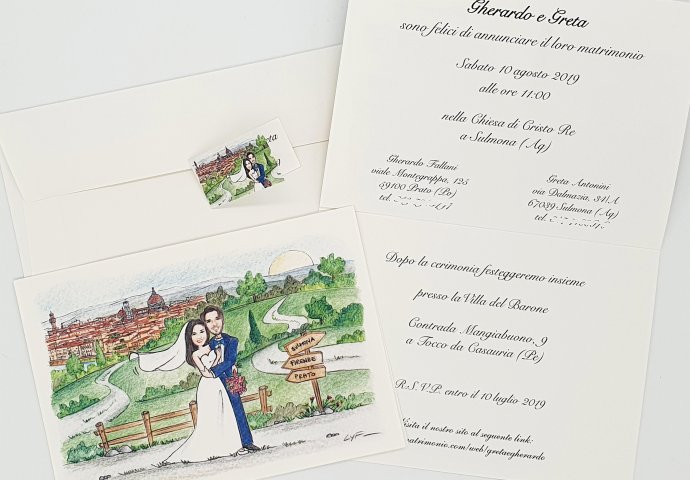 Gherardo e Greta
sono felici di annunciare il loro matrimonio
Sabato 10 agosto 2019
alle ore 11:00
nella Chiesa di Cristo Re
a Sulmona (Aq)
Gherardo Fallani
viale Montegrappa, 125
59100 Prato (Po)
tel.
Greta Antonini
via Dalmazia, 34/A
67039 Sulmona (Aq)
tel.
Dopo la cerimonia festeggeremo insieme
presso la Villa del Barone
Contrada Mangiabuono, 9
a Tocco da Casauria (Pe)
R.S.V.P. entro il 10 luglio 2019
Visita il nostro sito al seguente link:
matrimonio.com/web/gretaegherardo
SULMONA
FIRENZE
PRATO